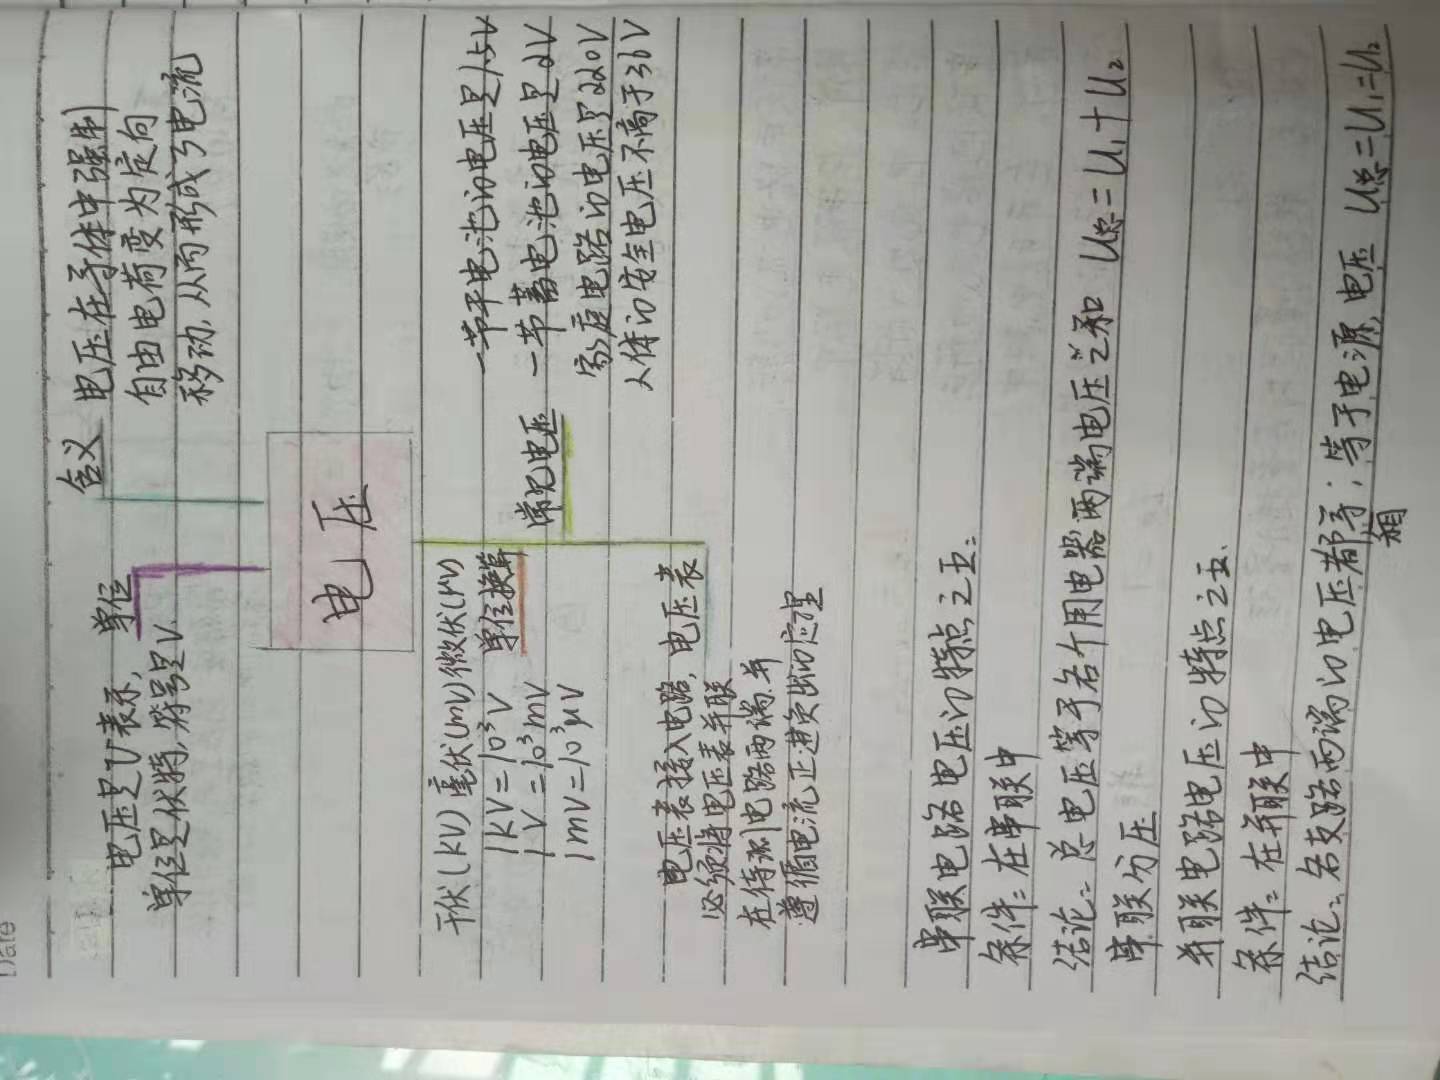 Date
含义
电压在导体中强制
自由电荷变为定向
移动,从而形成了电流
单位
电压是U表示,
单位是伏特,符号是V.
电压
千伏(KV)毫伏(mV)微伏(μV)
单位换算
1KV=10³V
1V=10³mV
1mV=10³μV
常见电压
一节干电池的电压是1.5V
一节蓄电池的电压是2V
家庭电路的电压是220V
人体的安全电压不高于36V
电压表
电压表接入电路,
必须将电压表并联
在待测电路两端.并
遵循电流正进负出的
串联电路电压的特点之五:
条件:在串联中
结论:总电压等于各个用电器两端电压之和 U总=U₁+U₂
串联分压
并联电路电压的特点之五.
条件:在并联中
结论:各支路两端的电压都相等;等于电源电压 U总=U₁=U₂